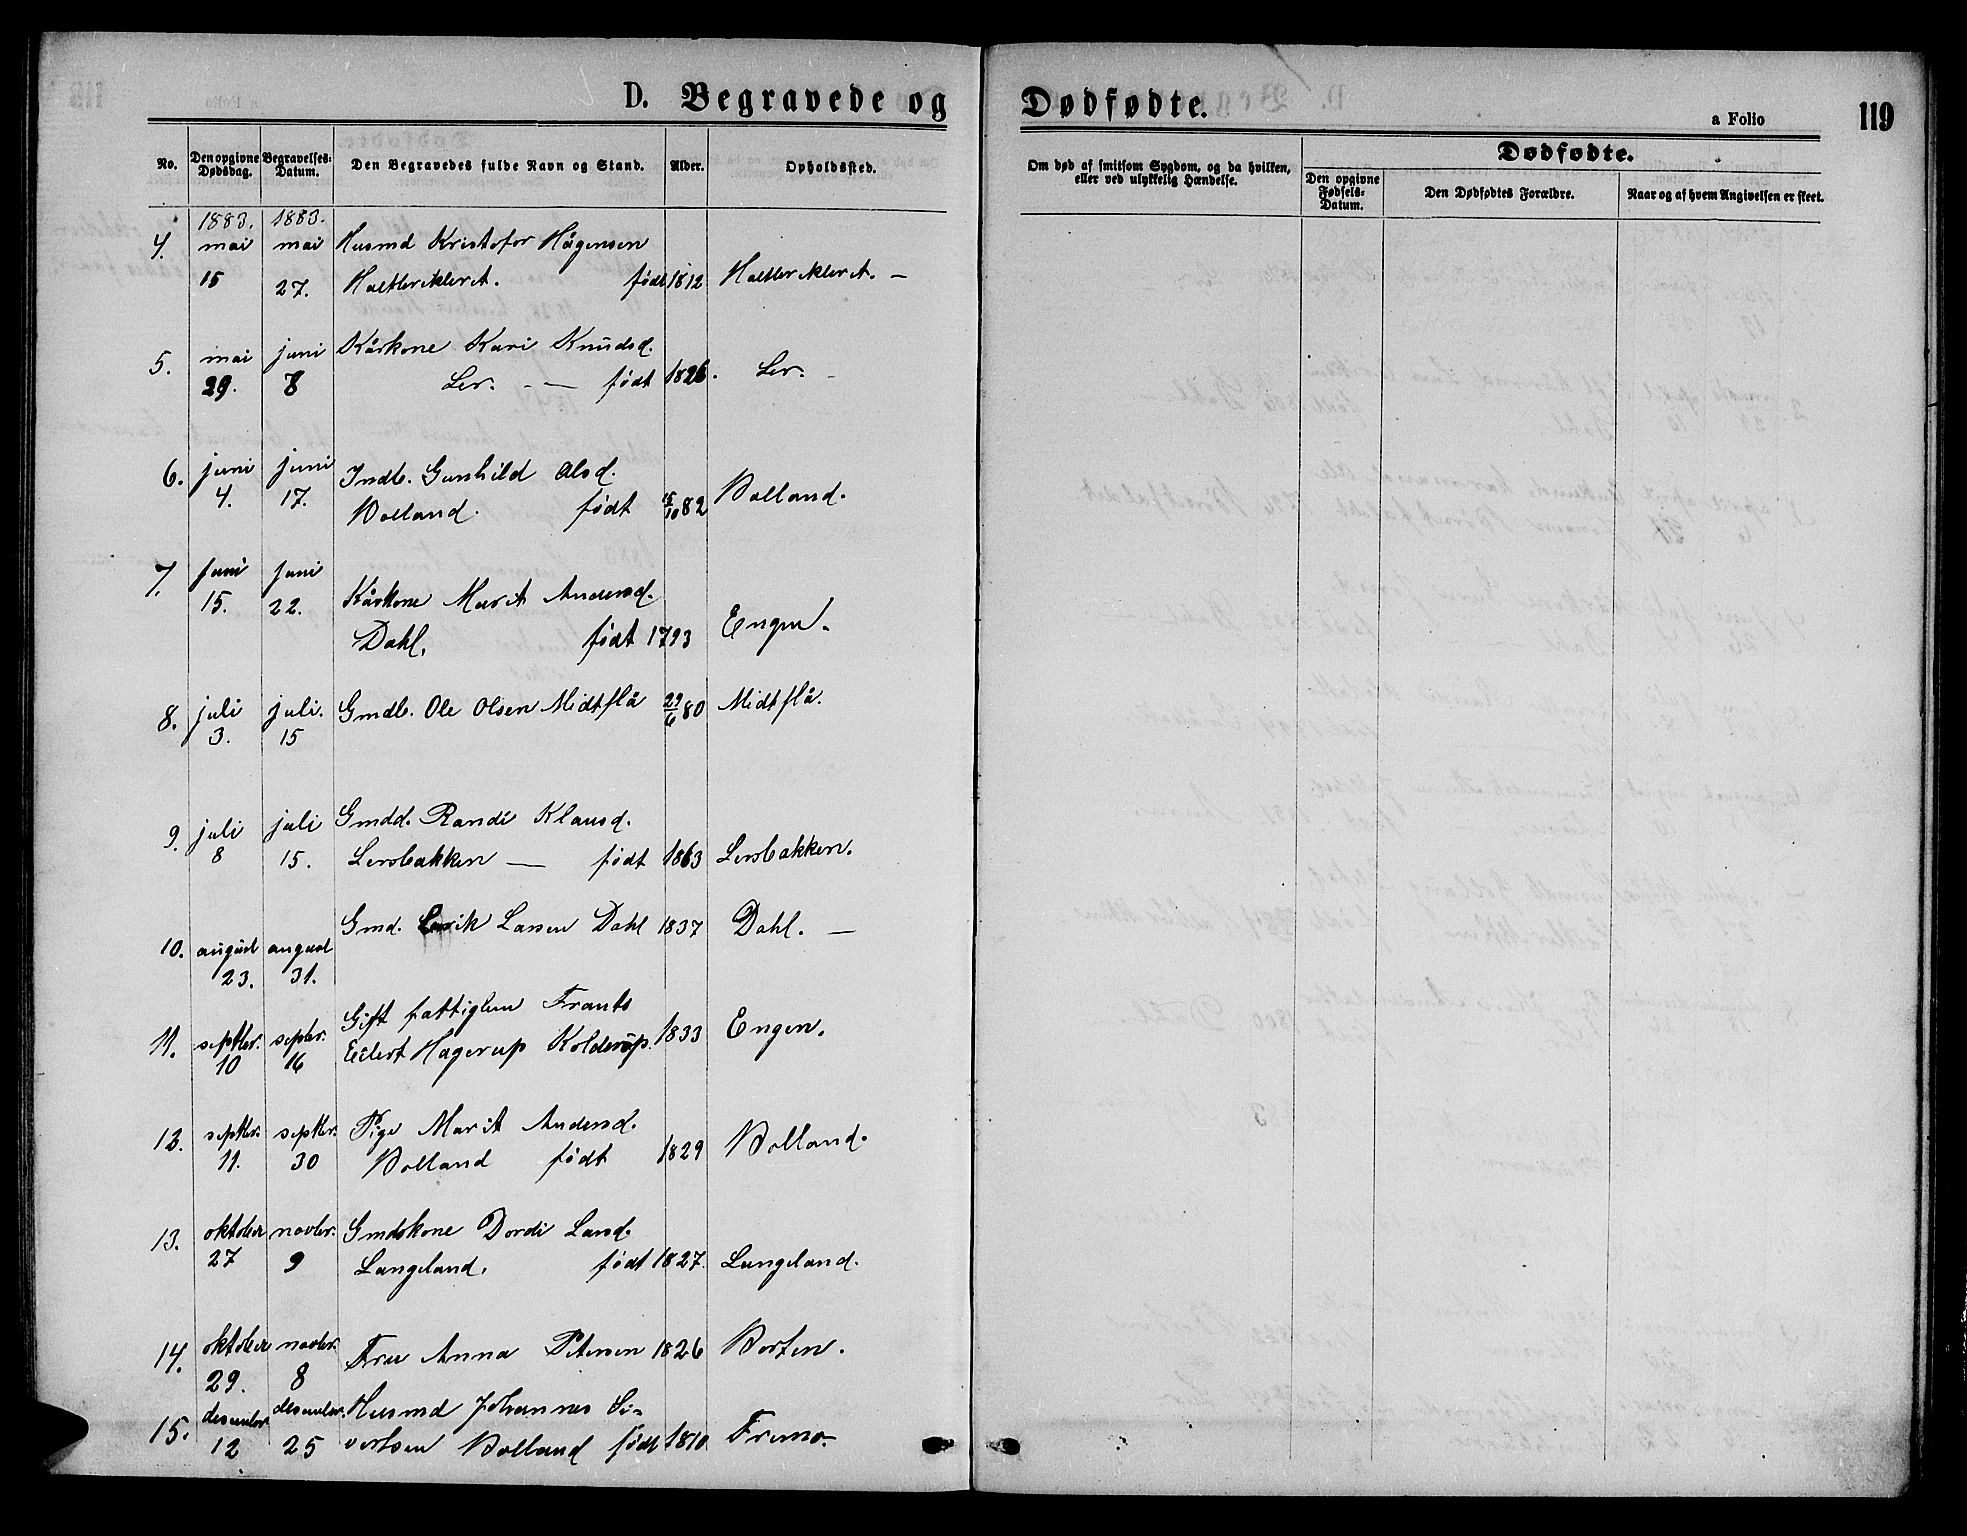 D. Begravede og Dødfødte.
a Folio 119
No. Den opgivne Dødsdag. Begravelses-Datum. Den Begravedes fulde Navn og Stand. Alder. Opholdssted.
Om død af smitsom Sygdom, og da hvilken, eller ved ulykkelig Hændelse.
Dødfødte.
Den opgivne Fødsels-Datum. Den Dødfødtes Forældre. Naar og af hvem Angivelsen er skeet.
1883. 1883.
4. mai mai Husmd Kristofor Hågensen
15 27. født 1812
5. mai juni Kårkone Kari Knudsd. Ler.
29. 8 Ler. født 1826.
6. juni juni Indb. Gunhild Olsd. Bolland.
4. 17. Bolland. født 15/10 82
7. juni juni Kårkone Marit Andersd. Engen.
15. 22. Dahl. født 1793
8. juli juli. Gmdb. Ole Olsen Midtflå 29/6 80 Midtflå.
3. 15
9. juli juli Gmdd. Randi Klausd.
8 15. Lersbakken — født 1863 Lersbakken.
Gmd. Larsen Dahl 1837 Dahl. —
10. august august
23. 31.
Gift fattiglem Frants
11. septbr. septbr. Eilert Hagerup Kolderup. 1833 Engen.
10 16
12. septbr. septbr. Pige Marit Andersd.
11. 30 Bolland født 1829 Bolland.
13. oktober novbr. Gmdskone Dordi Larsd.
27 9 Langeland. født 1827. Langeland.
14. oktober novbr. Fru Anna Petersen 1826 Borten.
29. 8
desember desember. Husmd Johannes Si-
15. 12 25 vertsen Bolland født 1810 Fremo.